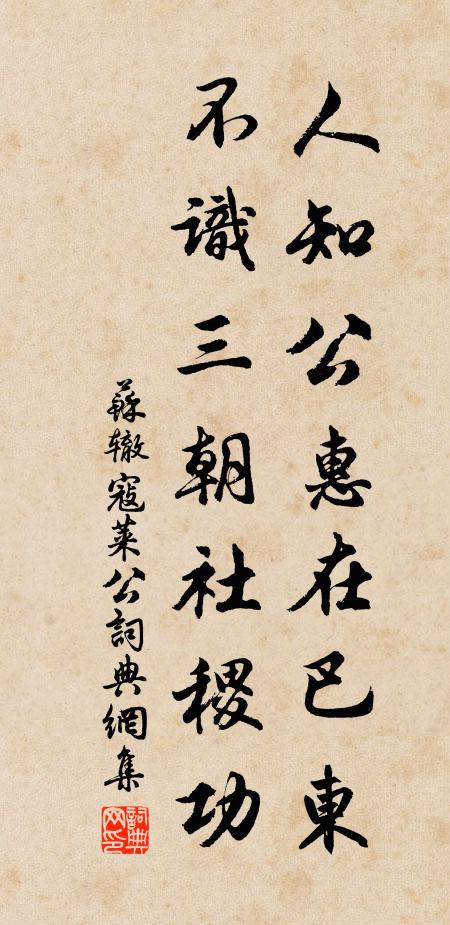 人知公惠在巴東
不識三朝社稷功
蘇轍寇萊公詞典網集
詞典网印